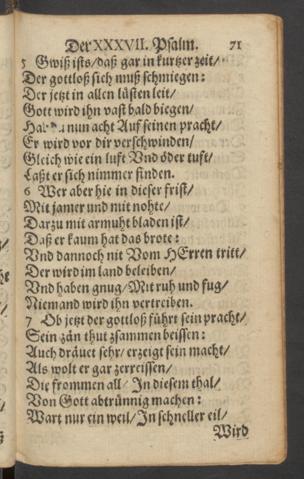 Der XXXVII. Psalm. 71
5 Gwiß ists/daß gar in kurtzer zeit/
Der gottloß sich muß schmiegen:
Der jetzt in allen lüsten leit/
Gott wird ihn vast bald biegen/
nun acht Auf seinen pracht/
Er wird vor dir verschwinden/
Gleich wie ein luft Vnd öder tuft/
Laßt er sich nimmer finden.
6 Wer aber hie in dieser frist/
Mit jamer und mit nohte/
Darzu mit armuht bladen ist/
Daß er kaum hat das brote:
Vnd dannoch nit Vom HErren tritt/
Der wird im land beleiben/
Vnd haben gnug/Mit ruh und fug/
Niemand wird ihn vertreiben.
7 Ob jetzt der gottloß führt sein pracht/
Sein zän thut zsammen beissen:
Auch dräuet sehr/ erzeigt sein macht/
Als wolt er gar zerreissen/
Die frommen all/ In diesem thal/
Von Gott abtrünnig machen:
Wart nur ein weil/ In schneller eil/
Wird